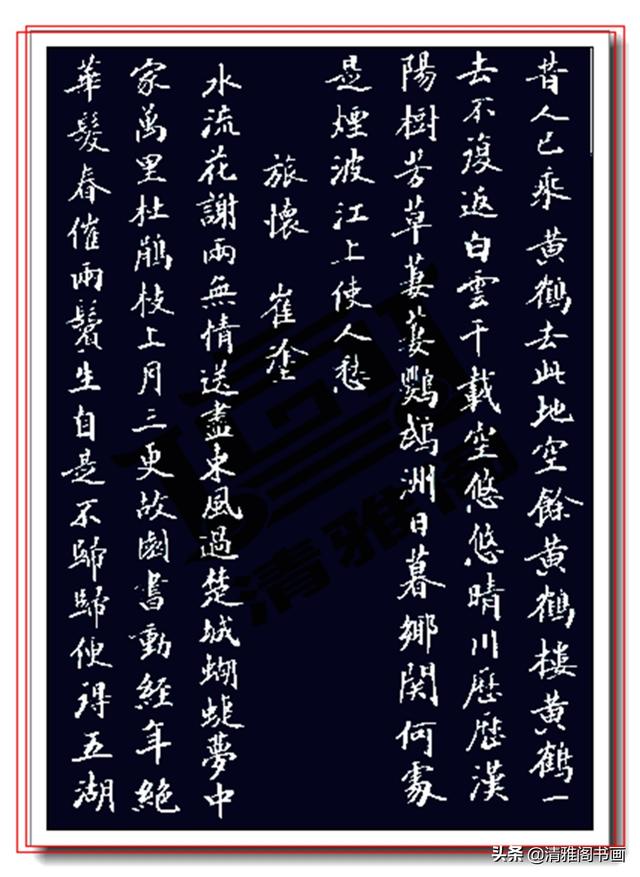 昔人已乘黃鶴去此地空餘黃鶴樓黃鶴一
去不復返白雲千載空悠悠晴川歷歷漢
陽樹芳草萋萋鸚鵡洲日暮鄉関何處
是煙波江上使人愁
旅懷 崔塗
水流花謝兩無情送盡東風過楚城蝴蝶夢中
家萬里杜鵑枝上月三更故園書動經年絕
華髮春催兩鬢生自是不歸歸便得五湖
清雅阁
头条 @清雅阁书画